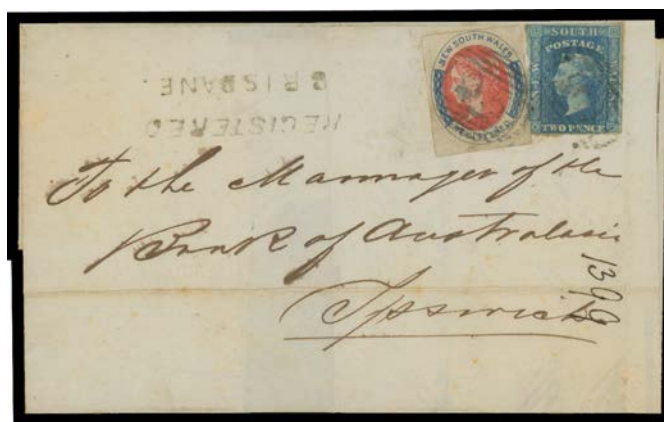 REGISTERED
BRISBANE
NEW SOUTH WALES
REGISTERED
SOUTH
POSTAGE
NEW
WALES
TWO PENCE
To the Mannager of the
Bank of Australasia
Ipswich
1399